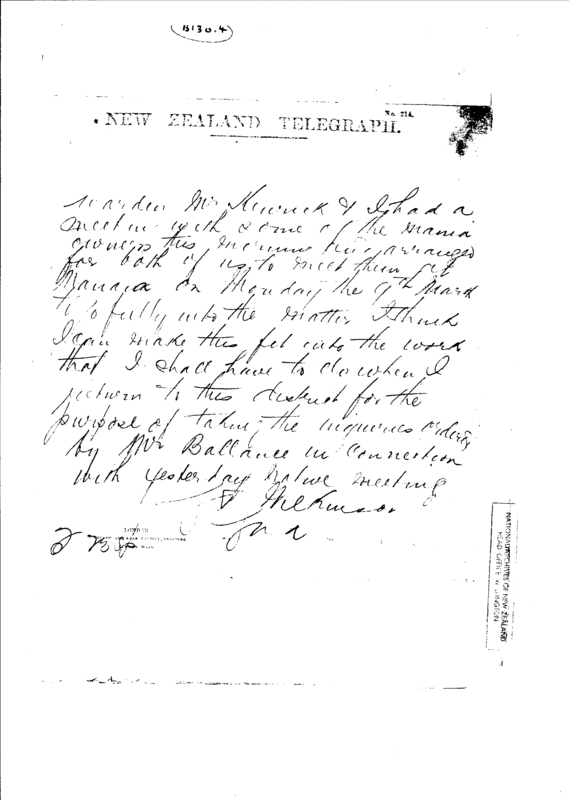 B130.4
No. 214.
NEW ZEALAND TELEGRAPH.
Warden Mr Kenrick & I had a
meeting with some of the mania
owners this morning & arranged
for both of us to meet them at
Manaia on Monday the 9th March
to go fully into the matter I think
I can make this fit into the work
that I shall have to do when I
return to this district for the
purpose of taking the inquiries ordered
by Mr Ballance in connection
with yesterday native meeting
Wilkinson
NATIONAL ARCHIVES OF NEW ZEALAND
HEAD OFFICE WELLINGTON